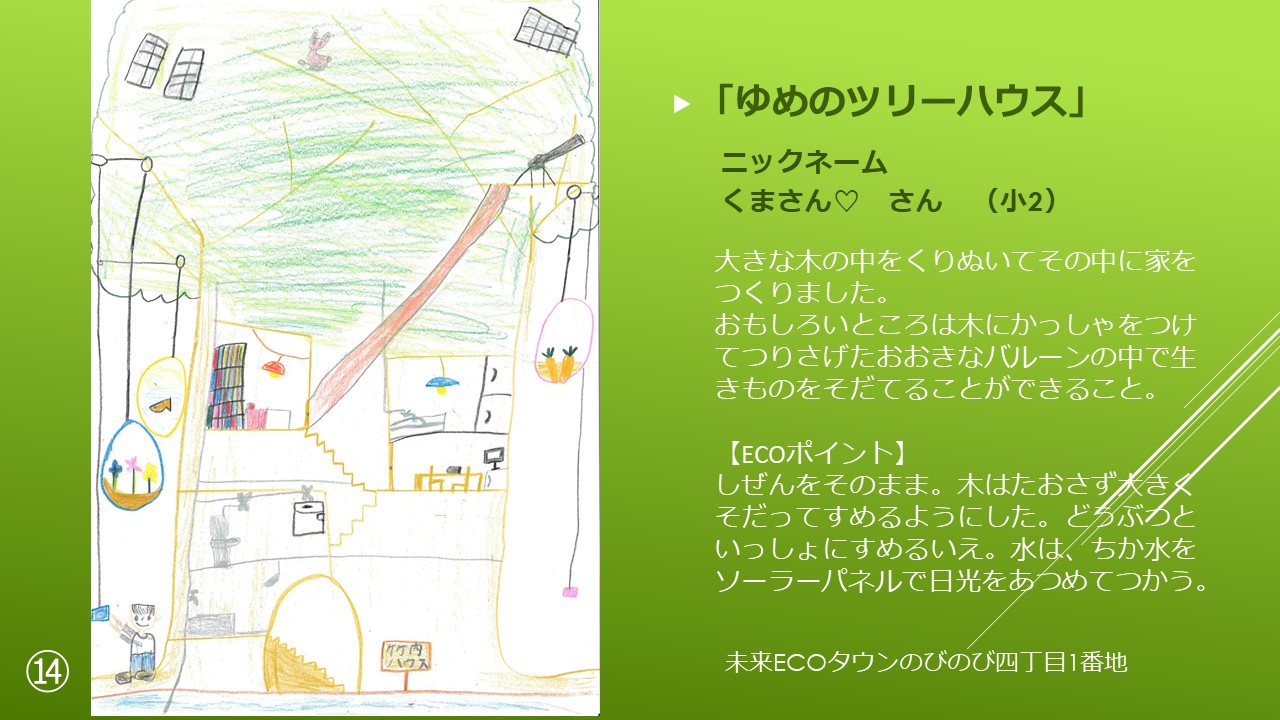 「ゆめのツリーハウス」
ニックネーム
くまさん♡　さん　（小2）
大きな木の中をくりぬいてその中に家を
つくりました。
おもしろいところは木にかっしゃをつけ
てつりさげたおおきなバルーンの中で生
きものをそだてることができること。
【ECOポイント】
しぜんをそのまま。木はたおさず大きく
そだってすめるようにした。どうぶつと
いっしょにすめるいえ。水は、ちか水を
ソーラーパネルで日光をあつめてつかう。
未来ECOタウンのびのび四丁目1番地
竹内
ハウス
⑭